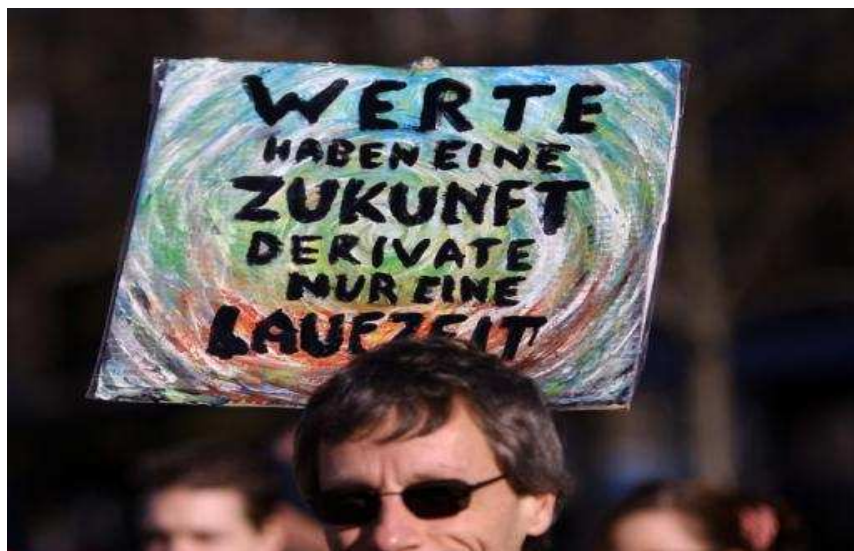 WERTE
HABEN EINE
ZUKUNFT
DERIVATE
NUR EINE
LAUFZEIT